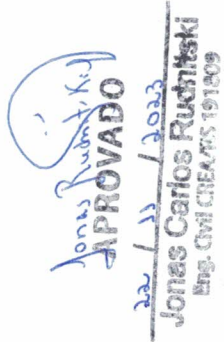 Jonas Rudnitski
APROVADO
22 / 11 / 2023
Jonas Carlos Rudnitski
Eng. Civil CREA/RS 191809